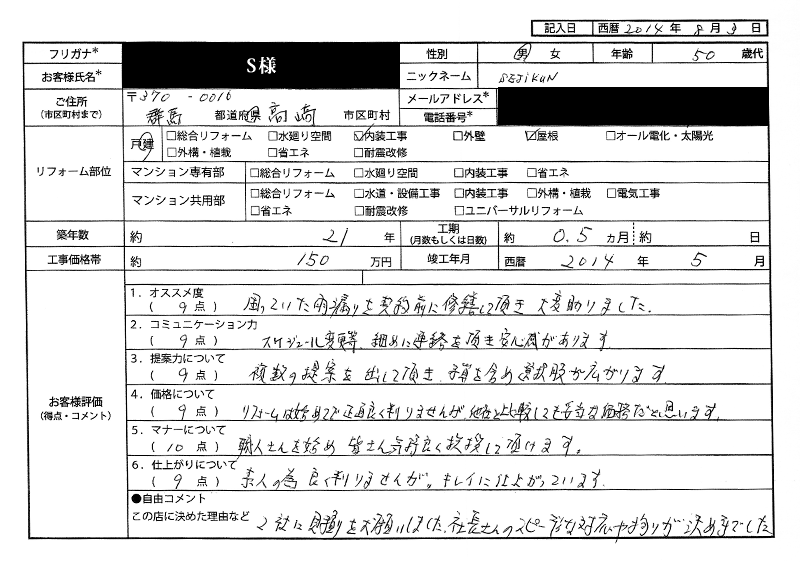 記入日 西暦 2014 年 8 月 3 日
フリガナ* S様 性別 男 女 年齢 50 歳代
お客様氏名* ニックネーム SEJIKUN
ご住所 〒370-0016 メールアドレス*
(市区町村まで) 群馬 都道府県 高崎 市区町村 電話番号*
リフォーム部位
戸建 □総合リフォーム □水廻り空間 ☑内装工事 □外壁 ☑屋根 □オール電化・太陽光
□外構・植栽 □省エネ □耐震改修
マンション専有部 □総合リフォーム □水廻り空間 □内装工事 □省エネ
マンション共用部 □総合リフォーム □水道・設備工事 □内装工事 □外構・植栽 □電気工事
□省エネ □耐震改修 □ユニバーサルリフォーム
築年数 約 21 年 工期 (月数もしくは日数) 約 0.5 ヵ月 約 日
工事価格帯 約 150 万円 竣工年月 西暦 2014 年 5 月
お客様評価
(得点・コメント)
1.オススメ度
( 9 点 ) 困っていた雨漏りを契約前に修繕して頂き 大変助りました.
2.コミュニケーション力
( 9 点 ) スケジュール変更等、細めに連絡を頂き安心感があります
3.提案力について
( 9 点 ) 複数の提案を出して頂き、予算を含め選択肢が広がります
4.価格について
( 9 点 ) リフォームは始めてで正直良く判りませんが、他社と比較しても妥当な価格だと思います.
5.マナーについて
( 10 点 ) 職人さんを始め 皆さん気持良く挨拶して頂けます。
6.仕上がりについて
( 9 点 ) 素人の為 良く判りませんが、キレイに仕上がっています.
●自由コメント
この店に決めた理由など 2社に見積りをお願いしました、社長さんのスピーディな対応や拘りが決め手でした